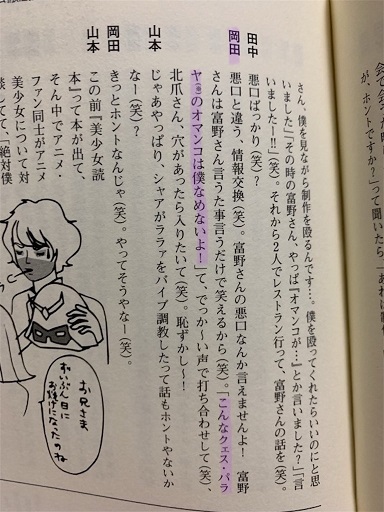 が、ホントですか？」って聞いたら、
さん、僕を見ながら制作を殴るんです…。僕を殴ってくれたらいいのにと思
いました」「その時の富野さん、やっぱ『オマンコが…』とか言いました？」「言
いましたー!!」（笑）。それから2人でレストラン行って、富野さんの話を（笑）。
田中　悪口ばっかり（笑）？
岡田　悪口と違う、情報交換（笑）。富野さんの悪口なんか言えませんよ！　富野
さんは富野さん言うた事言うだけで笑えるから（笑）。「こんなクェス・パラ
ヤのオマンコは僕なめないよ！」て、でっか〜い声で打ち合わせして（笑）、
北爪さん、穴があったら入りたいて（笑）。恥ずかし〜！
山本　じゃあやっぱり、シャアがララァをバイブ調教したって話もホントやないか
なー（笑）？
岡田　きっとホントなんじゃ（笑）。やってそうやなー（笑）。
山本　この前『美少女読
本』って本が出て、
そん中でアニメ・
ファン同士がアニメ
美少女について対
談してて、「絶対僕
お兄さま
ずいぶん目に
お嘆げになったのね